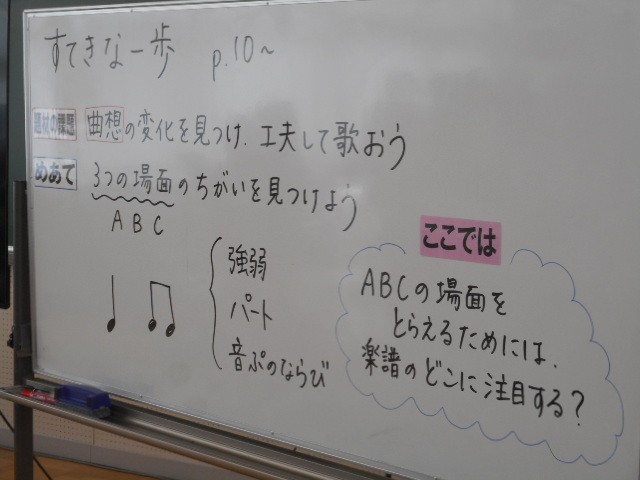 すてきな一歩 p.10~
題材の課題 曲想の変化を見つけ、工夫して歌おう
めあて 3つの場面のちがいを見つけよう
A B C
強弱
パート
音ぷのならび
ここでは
ABCの場面を
とらえるためには、
楽譜のどこに注目する?